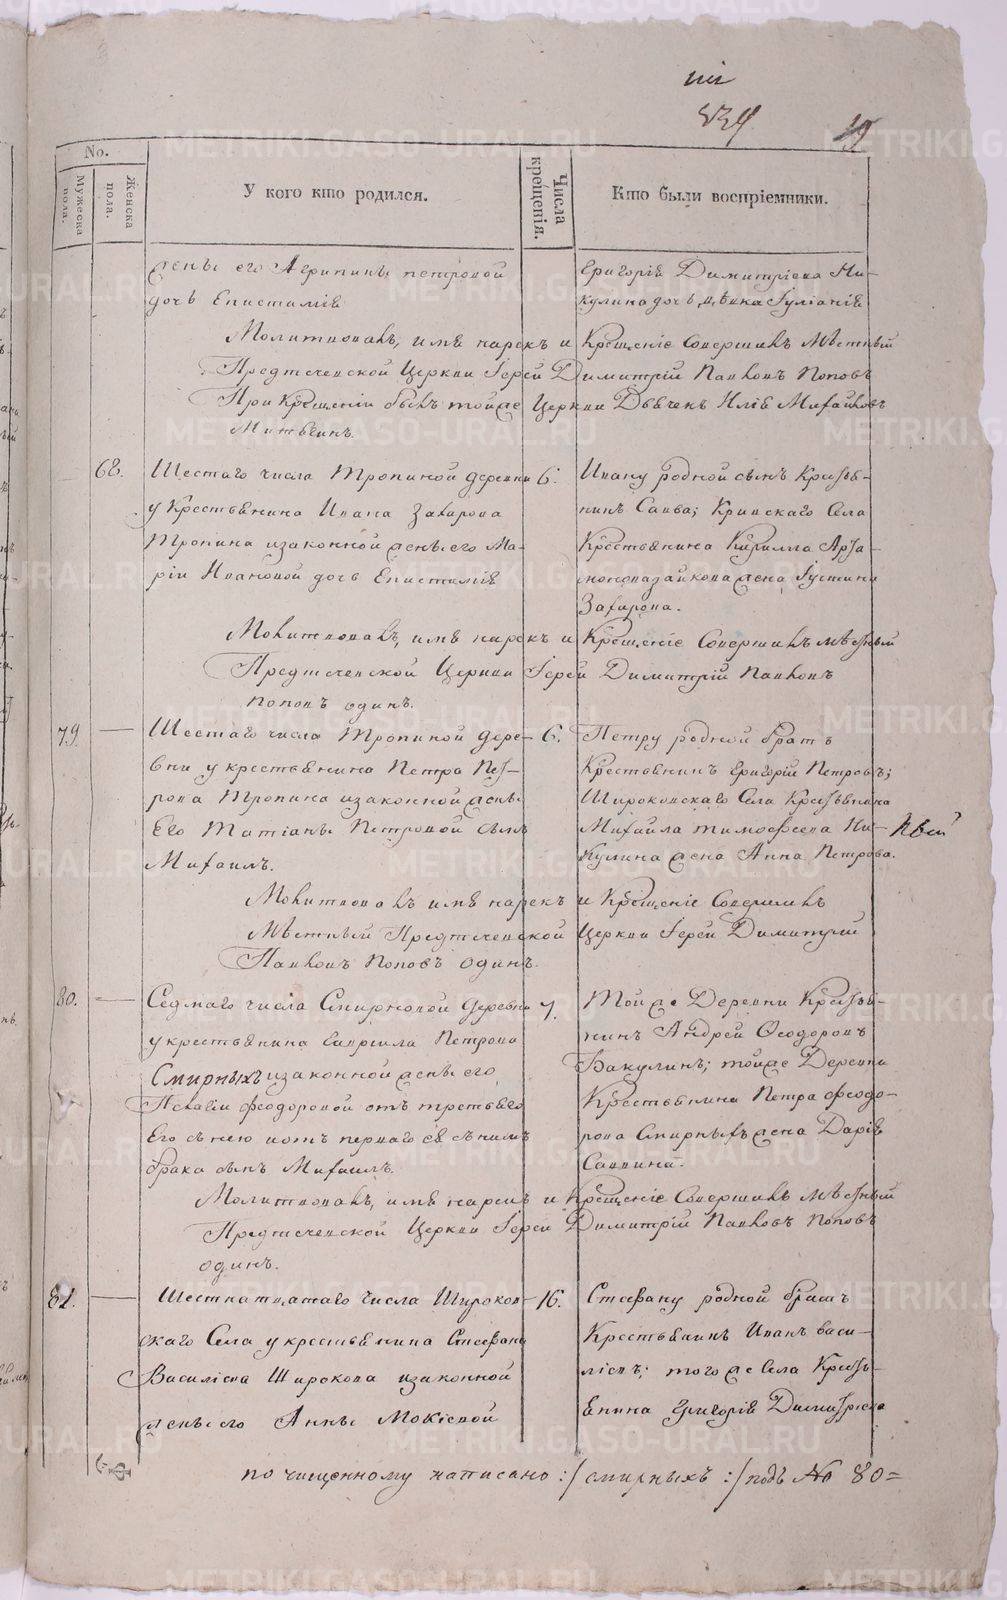 834
19
No.
Мужеска пола.
Женска пола.
У кого кто родился.
Числа крещенія.
Кто были воспріемники.
женѣ его Агрипинѣ петровой
дочь Епистимія
Григорія Димитріева Ни-
кулина дочь дѣвка Іуліанія
Молитвовалъ, имя нарекъ и Крещеніе Совершилъ Мѣстный
Предтеченской Церкви Іерей Димитрій Павловъ Поповъ
При Крещеніи былъ тойже Церкви Дьячекъ Илія Михайловъ
Митьвинъ.
68.
Шестаго числа Тропиной деревни
у Крестьянина Ивана Захарова
Тропина изаконной женѣ его Ма-
ріи Ивановой дочь Епистимія
6.
Ивану родной сынъ Кресть-
нинъ Савва; Кривскаго Села
Крестьянина Кирилла
жена Іустина
Захарова.
Молитвовалъ, имя нарекъ и Крещеніе Совершилъ мѣстный
Предтеченской Церкви Іерей Димитрій Павловъ
поповъ одинъ.
79.
Шестаго числа Тропиной дере-
вни у крестьянина Петра Пет-
рова Тропина изаконной женѣ
Его Татіанѣ Петровой сынъ
Михаилъ.
6.
Петру родной братъ
Крестьянинъ Григорій Петровъ;
Широковскаго Села Крестьянина
Михаила тимофеева Ни-
кулина жена Анна Петрова.
Молитвовалъ имя нарекъ и Крещеніе Совершилъ
Мѣстный Предтеченской Церкви Іерей Димитрій
Павловъ Поповъ одинъ.
80.
Седмаго числа Смирновой деревни
у крестьянина Гавриила Петрова
Смирныхъ изаконной женѣ его
феодоровой отъ третьяго
Его сънею иотъ перваго ея сънимъ
брака сынъ Михаилъ.
7.
Той же Деревни Кресть-
нинъ Андрей Феодоровъ
Бакулинъ; тойже Деревни
Крестьянина Петра феодо-
рова Смирныхъ жена Дарія
Саввина.
Молитвовалъ, имя нарекъ и Крещеніе Совершилъ мѣстный
Предтеченской Церкви Іерей Димитрій Павловъ Поповъ
одинъ.
81.
Шестнатцатаго числа Широков-
скаго Села у крестьянина Стефана
Василіева Широкова изаконной
женѣ его Аннѣ Мокіевой
16.
Стефану родной братъ
Крестьянинъ Иванъ васи-
ліевъ; того же Села Кресть-
янина Григорія Димитріева
по чищенному написано :/ смирныхъ :/ подъ No 80=
METRIKI.GASO-URAL.RU